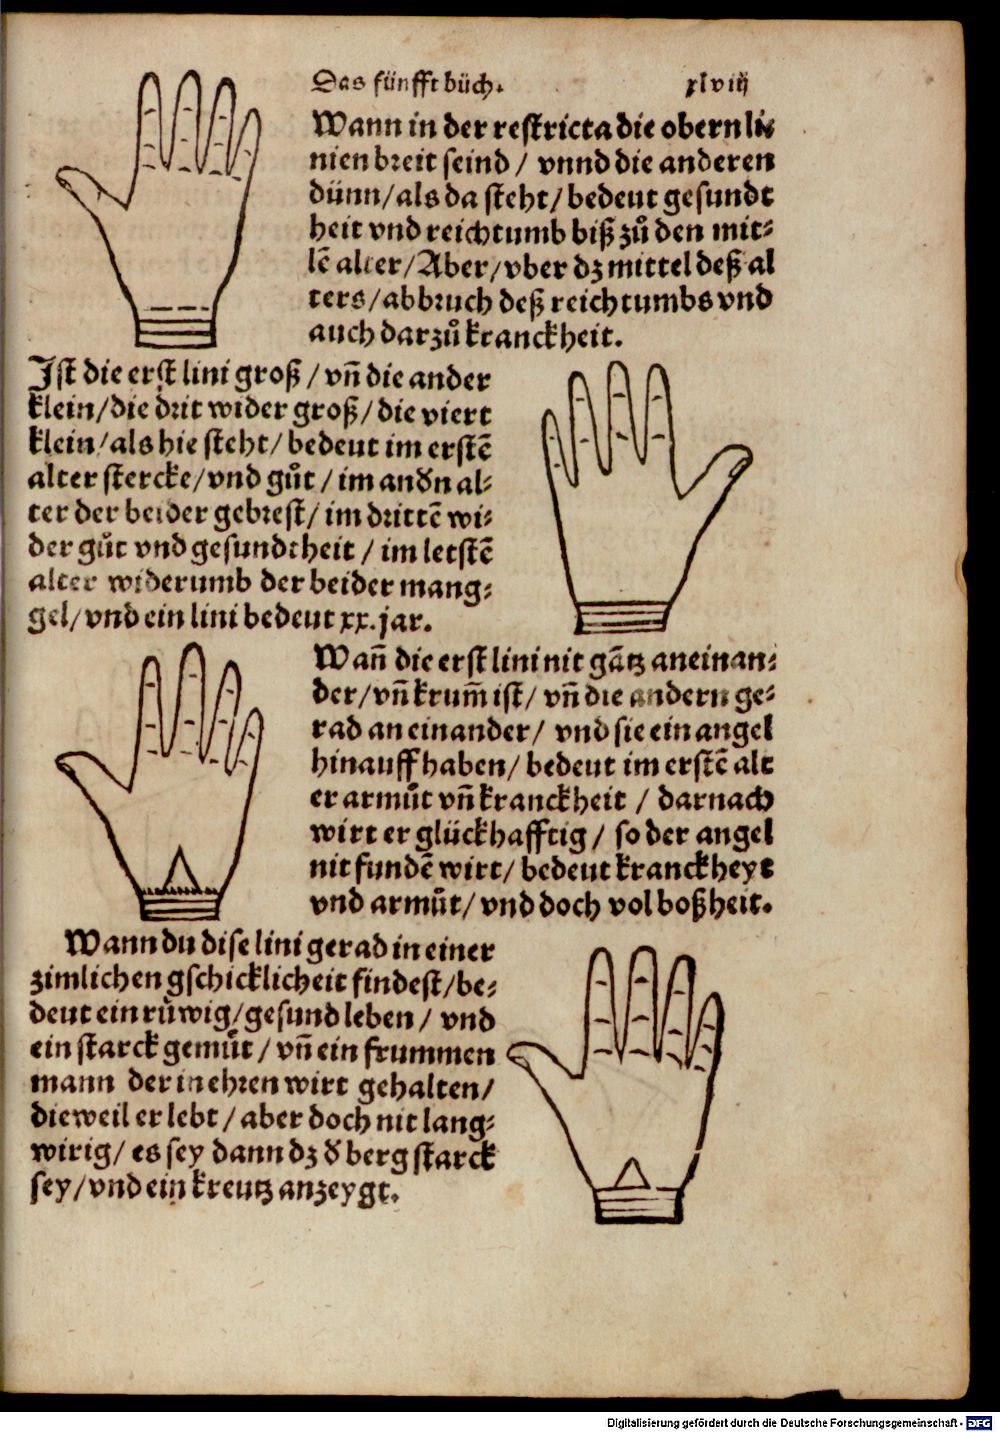 Das fünfft bůch. xlviij
Wann in der restricta die obern li⸗
nien breit seind / vnnd die anderen
dünn/als da steht/bedeut gesundt
heit vnd reichtumb biß zů den mit⸗
lē alter/Aber/vber dz mittel deß al
ters/abbruch deß reichtumbs vnd
auch darzů kranckheit.
Ist die erst lini groß/vñ die ander
klein/die drit wider groß/die viert
klein/als hie steht/bedeut im erstē
alter stercke/vnd gůt/im andn al⸗
ter der beider gebrest/im drittē wi⸗
der gůt vnd gesundtheit/im letstē
alter widerumb der beider mang⸗
gel/vnd ein lini bedeut xx.jar.
Wañ die erst lini nit gātz aneinan⸗
der/vñ krum̄ ist/vñ die andern ge⸗
rad an einander/vnd sie ein angel
hinauff haben/bedeut im erstē alt
er armůt vñ kranckheit/darnach
wirt er glückhafftig/so der angel
nit fundē wirt/bedeut kranckheyt
vnd armůt/vnd doch vol boßheit.
Wann du dise lini gerad in einer
zimlichen gschicklicheit findest/be⸗
deut ein rüwig/gesund leben/vnd
ein starck gemůt/vñ ein frummen
mann der in ehren wirt gehalten/
dieweil er lebt/aber doch nit lang⸗
wirig/es sey dann dz d̕ berg starck
sey/vnd ein kreutz anzeygt.
Digitalisierung gefördert durch die Deutsche Forschungsgemeinschaft - DFG